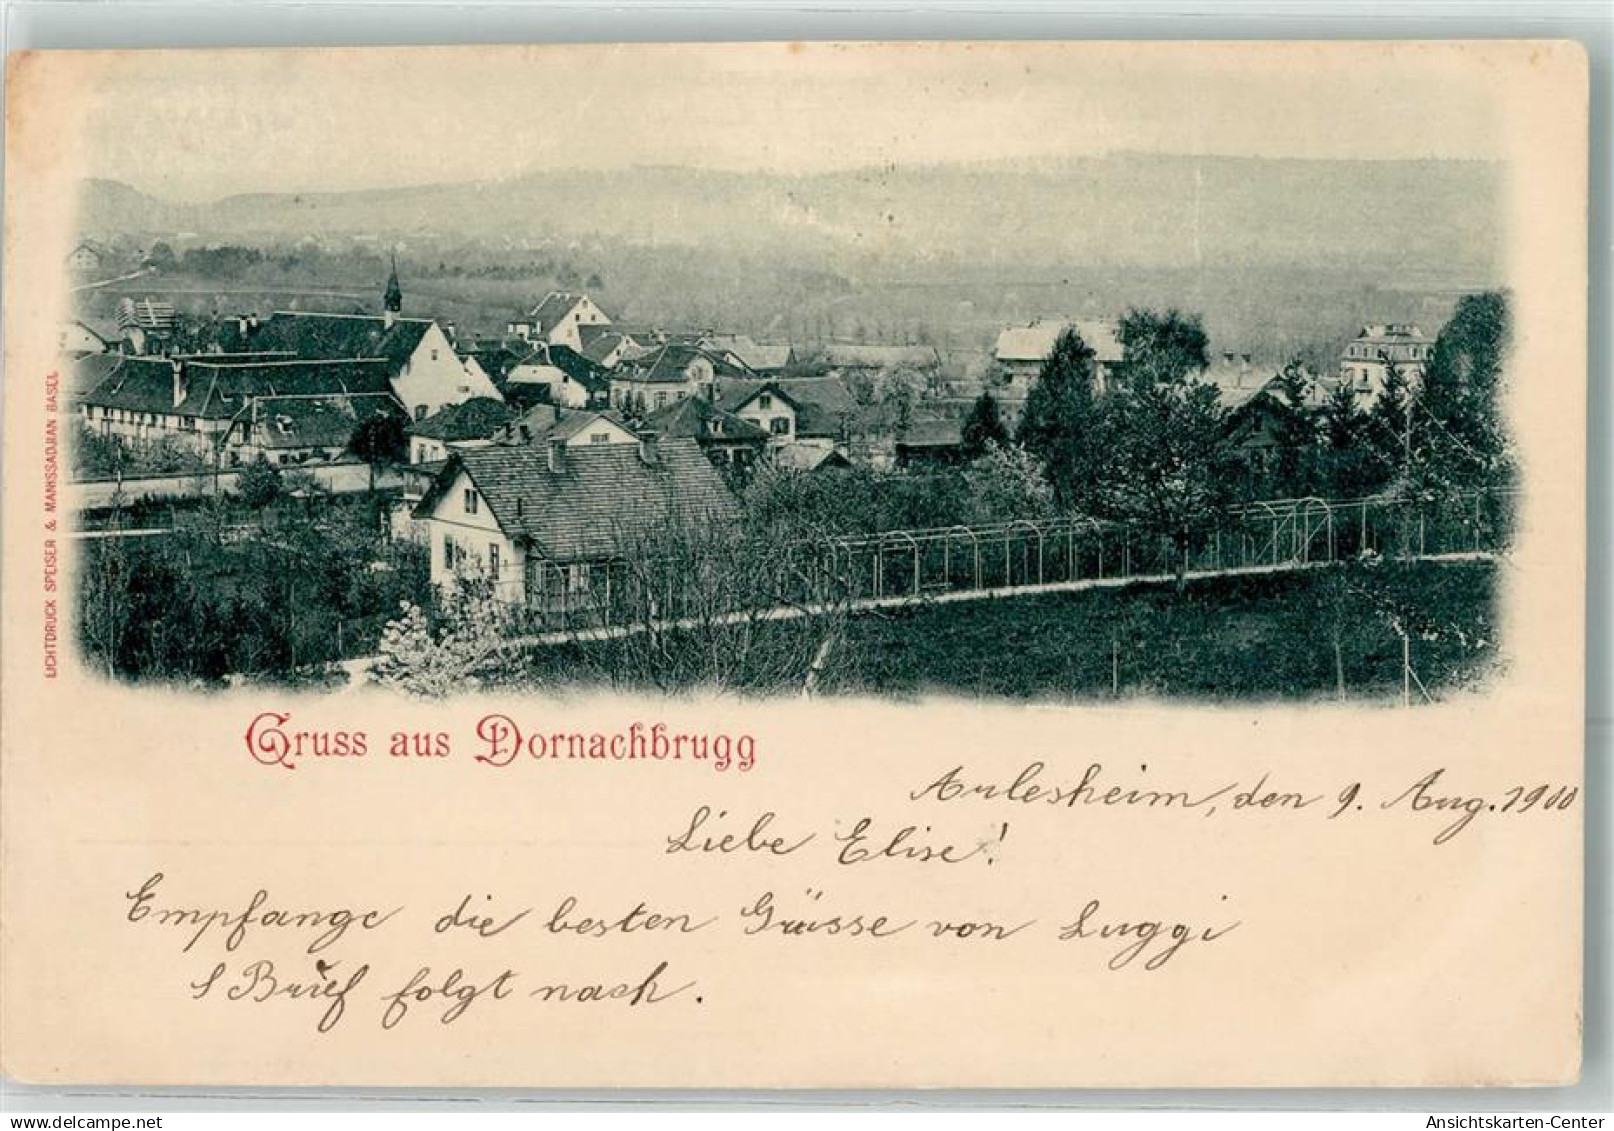 LICHTDRUCK SPEISER & MANISSADJIAN BASEL
Gruss aus Dornachbrugg
Arlesheim, den 9. Aug. 1900
Liebe Elise!
Empfange die besten Grüsse von Luggi
s Brief folgt nach.
www.delcampe.net
Ansichtskarten-Center